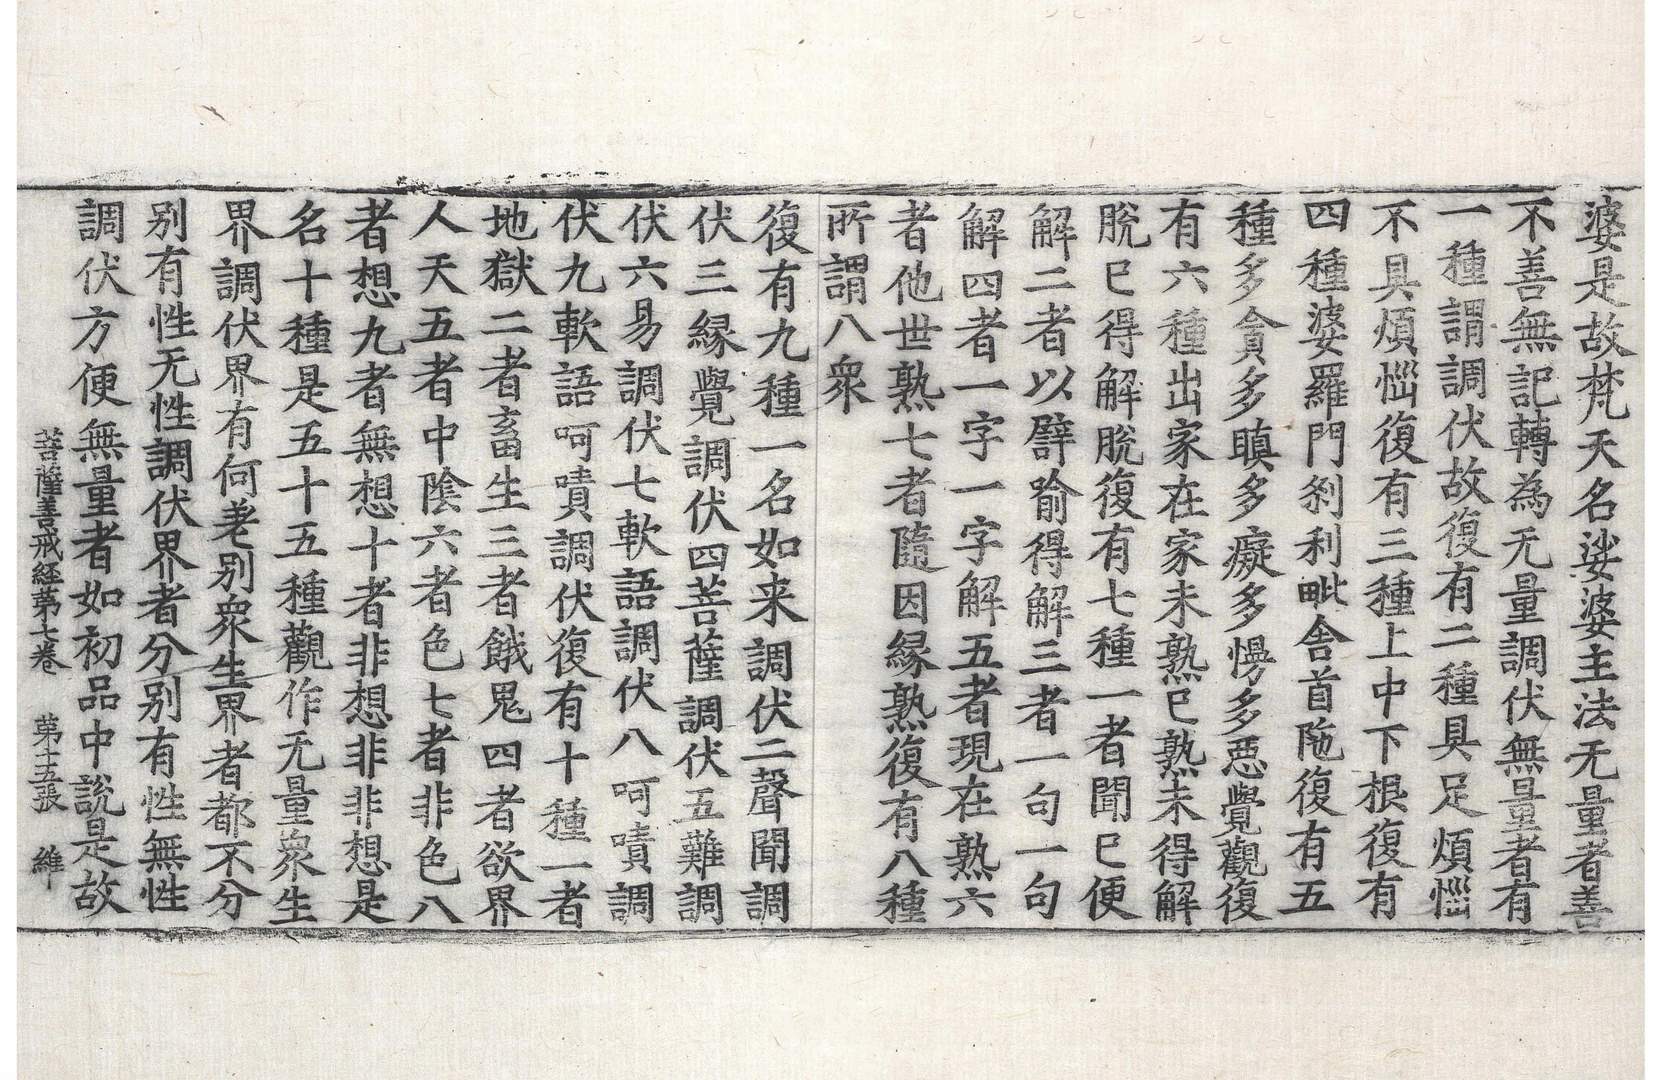 婆是故梵天名娑婆主法无量者善
不善無記轉為无量調伏無量者有
一種謂調伏故復有二種具足煩惱
不具煩惱復有三種上中下根復有
四種婆羅門刹利毗舍首陁復有五
種多貪多瞋多癡多慢多惡覺觀復
有六種出家在家未熟已熟未得解
脫已得解脫復有七種一者聞已便
解二者以譬喻得解三者一句一句
解四者一字一字解五者現在熟六
者他世熟七者隨因縁熟復有八種
所謂八衆
復有九種一名如来調伏二聲聞調
伏三縁覺調伏四菩薩調伏五難調
伏六易調伏七軟語調伏八呵嘖調
伏九軟語呵嘖調伏復有十種一者
地獄二者畜生三者餓鬼四者欲界
人天五者中陰六者色七者非色八
者想九者無想十者非想非非想是
名十種是五十五種觀作无量衆生
界調伏界有何差别衆生界者都不分
别有性无性調伏界者分别有性無性
調伏方便無量者如初品中說是故
菩薩善戒経苐七卷　苐十五張　維